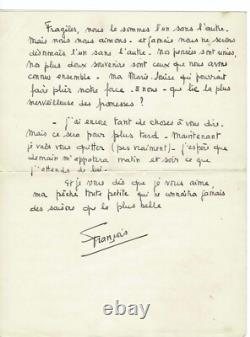 Fragiles, nous le sommes l'un sans l'autre.
Mais nous nous aimons - et jamais nous ne serons
désormais l'un sans l'autre. Nos pensées sont unies,
nos plus doux souvenirs sont ceux que nous avons
connus ensemble - ma Marie-Louise qui pourrait
faire plier notre force. Et nous - qui lie la plus
merveilleuse des promesses ?
- j'ai encore tant de choses à vous dire.
Mais ce sera pour plus tard. Maintenant
je vais vous quitter (pas vraiment) - j'espère que
demain m'apportera matin et soir ce que
j'attends de toi.
Et je vous dis que je vous aime,
ma pêche toute petite qui ne connaîtra jamais
des saisons que la plus belle
François